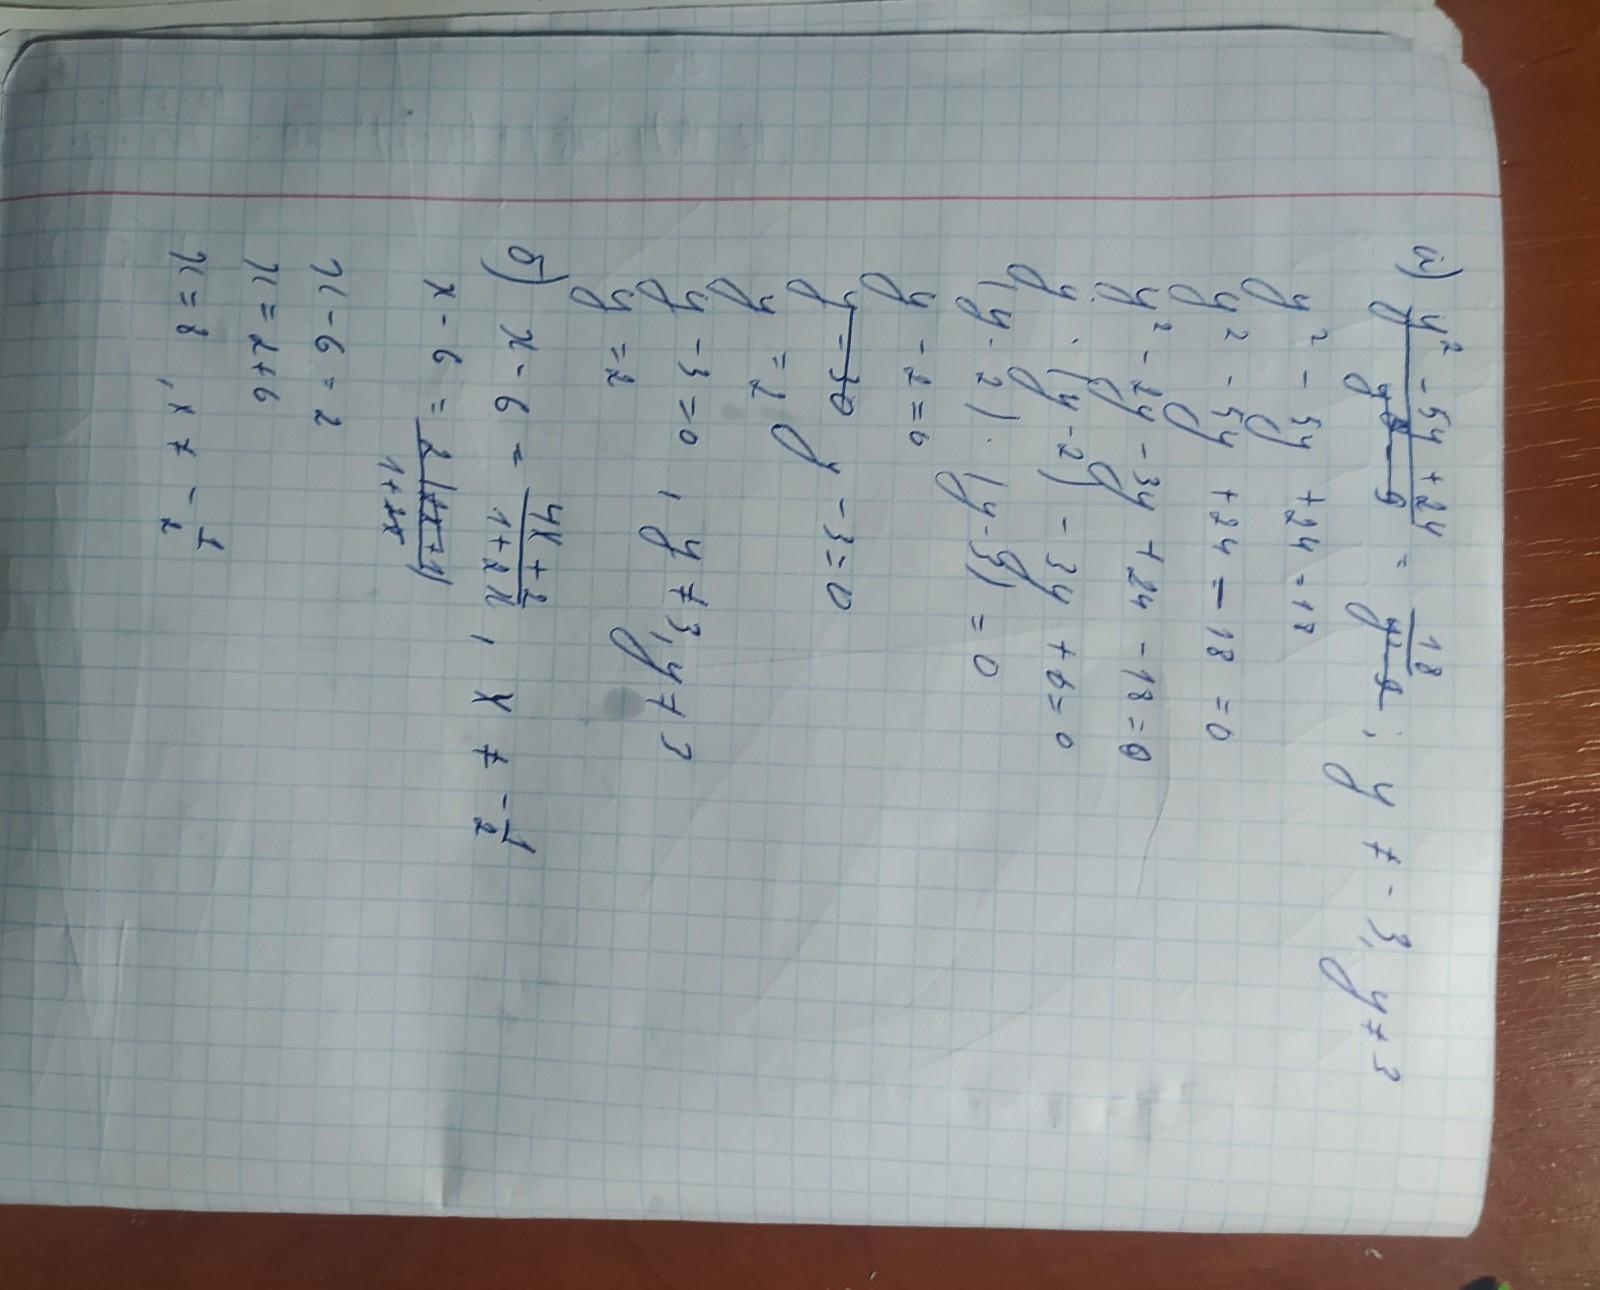 а) y² - 5y + 24 / y² - 9 = 18 / y² - 9 ; y ≠ - 3, y ≠ 3
y² - 5y + 24 = 18
y² - 5y + 24 - 18 = 0
y² - 2y - 3y + 24 - 18 = 0
y · (y - 2) - 3y + 6 = 0
(y - 2) · (y - 3) = 0
y - 2 = 0
y - 3 0 y - 3 = 0
y = 2
y - 3 = 0 , y ≠ 3, y ≠ 3
y = 2
б) x - 6 = 4x + 2 / 1 + 2x , x ≠ - 1/2
x - 6 = 2(2x + 1) / 1 + 2x
x - 6 = 2
x = 2 + 6
x = 8 , x ≠ - 1/2